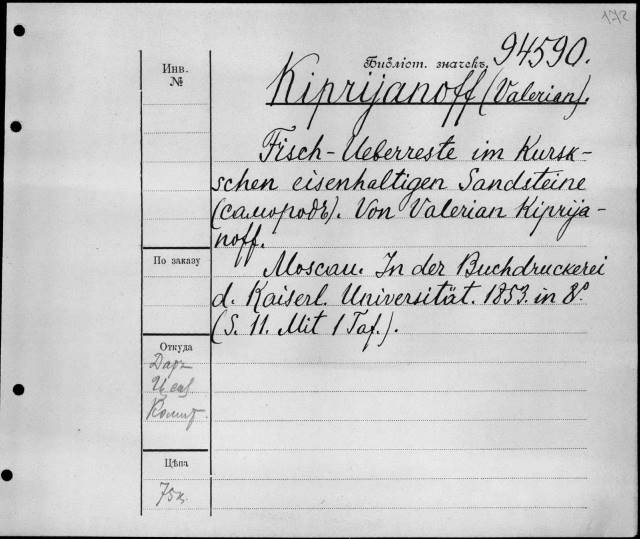 172
Библіот. значекъ. 94590.
Инв.
№
Kiprijanoff (Valerian).
Fisch-Ueberreste im Kursk-
schen eisenhaltigen Sandsteine
(самородъ). Von Valerian Kiprija-
noff.
По заказу
Moscau. In der Buchdruckerei
d. Kaiserl. Universität. 1853. in 8º.
(S. 11. Mit 1 Taf.).
Откуда
Даръ
Ценз
Комит.
Цѣна
75к.